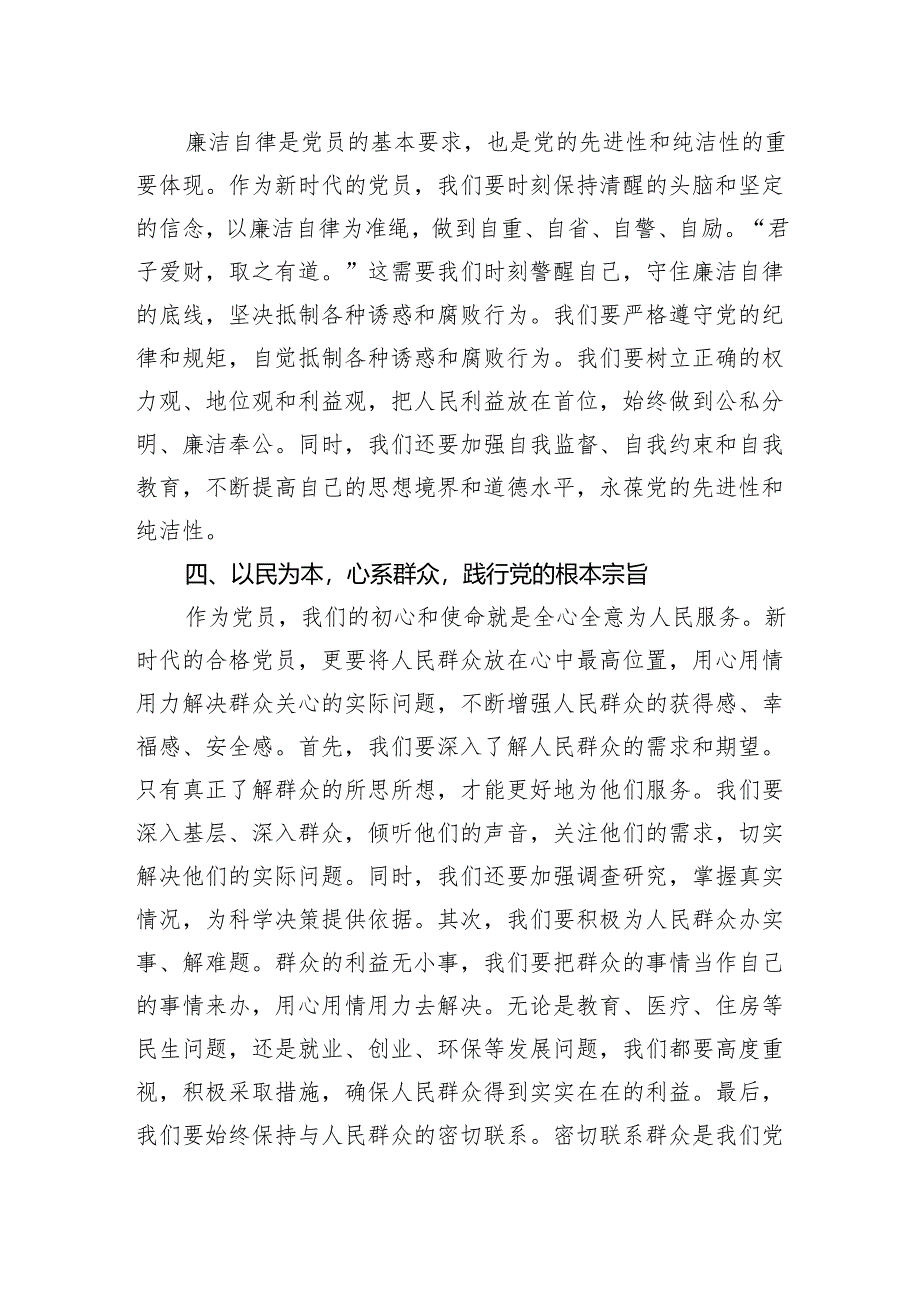 廉洁自律是党员的基本要求，也是党的先进性和纯洁性的重
要体现。作为新时代的党员，我们要时刻保持清醒的头脑和坚定
的信念，以廉洁自律为准绳，做到自重、自省、自警、自励。“君
子爱财，取之有道。”这需要我们时刻警醒自己，守住廉洁自律
的底线，坚决抵制各种诱惑和腐败行为。我们要严格遵守党的纪
律和规矩，自觉抵制各种诱惑和腐败行为。我们要树立正确的权
力观、地位观和利益观，把人民利益放在首位，始终做到公私分
明、廉洁奉公。同时，我们还要加强自我监督、自我约束和自我
教育，不断提高自己的思想境界和道德水平，永葆党的先进性和
纯洁性。
四、以民为本，心系群众，践行党的根本宗旨
作为党员，我们的初心和使命就是全心全意为人民服务。新
时代的合格党员，更要将人民群众放在心中最高位置，用心用情
用力解决群众关心的实际问题，不断增强人民群众的获得感、幸
福感、安全感。首先，我们要深入了解人民群众的需求和期望。
只有真正了解群众的所思所想，才能更好地为他们服务。我们要
深入基层、深入群众，倾听他们的声音，关注他们的需求，切实
解决他们的实际问题。同时，我们还要加强调查研究，掌握真实
情况，为科学决策提供依据。其次，我们要积极为人民群众办实
事、解难题。群众的利益无小事，我们要把群众的事情当作自己
的事情来办，用心用情用力去解决。无论是教育、医疗、住房等
民生问题，还是就业、创业、环保等发展问题，我们都要高度重
视，积极采取措施，确保人民群众得到实实在在的利益。最后，
我们要始终保持与人民群众的密切联系。密切联系群众是我们党